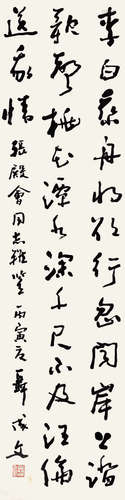 李白乘舟将欲行忽闻岸上踏
歌声桃花潭水深千尺不及汪伦
送我情
张殿会同志雅鉴 丙寅夏 聂成文